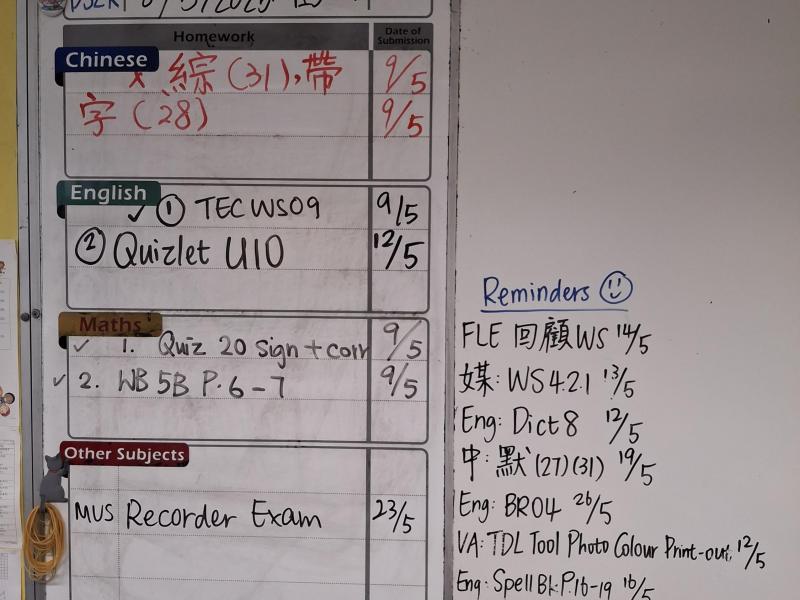 Homework Date of Submission
Chinese
× 綜(31),帶 9/5
字(28) 9/5
English
✓ ① TEC WS09 9/5
② Quizlet U10 12/5
Maths
✓ 1. Quiz 20 sign + corr 9/5
✓ 2. WB 5B P.6-7 9/5
Other Subjects
MUS Recorder Exam 23/5
Reminders ☺
FLE 回顧WS 14/5
媒: WS4.2.1 13/5
Eng: Dict 8 12/5
中: 默(27)(31) 19/5
Eng: BR04 26/5
VA: TDL Tool Photo Colour Print-out 12/5
Eng: Spell Bk P.16-19 16/5